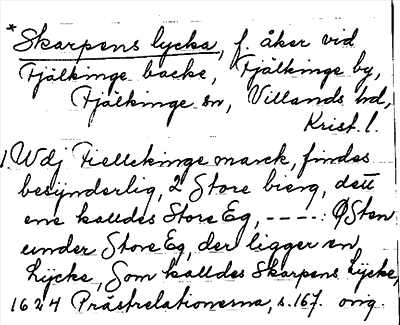 *Skarpens lycka, f. åker vid
Fjälkinge backe, Fjälkinge by,
Fjälkinge sn, Villands hd,
Krist. l.
1. Wdj Fiellekinge marck, findes
besynderlig, 2 Store bierg, dett
ene kalldes Store Eg, ----: Østen
under Store Eg, der ligger en,
Lycke, Som kalldes Skarpens Lycke,
1624 Prästrelationerna, s. 167. orig.